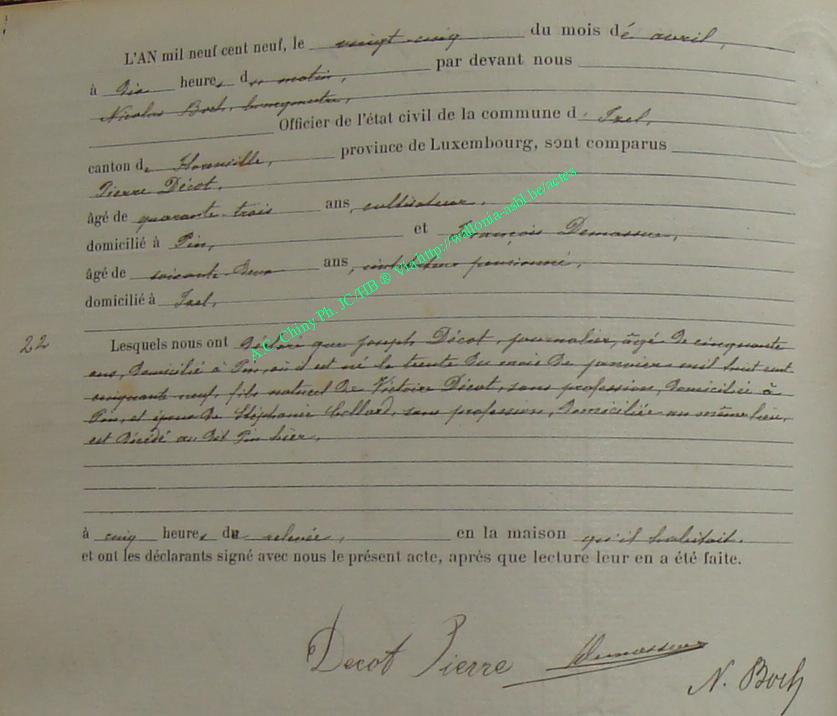 L'AN mil neuf cent neuf, le vingt-cinq du mois dé avril,
à Dix heures du matin, par devant nous
Nicolas Boch, bourgmestre,
Officier de l'état civil de la commune d' Izel,
canton de Florenville, province de Luxembourg, sont comparus
Pierre Décot,
âgé de quarante-trois ans, cultivateur,
domicilié à Pin, et François Demasseur,
âgé de soixante-deux ans, instituteur pensionné,
domicilié à Izel,
22 Lesquels nous ont déclaré que Joseph Décot, journalier, âgé de cinquante
ans, domicilié à Pin, où il est né le trente du mois de janvier mil huit cent
cinquante neuf, fils naturel de Victoire Décot, sans profession, domiciliée à
Pin, et époux de Stéphanie Collard, sans profession, domiciliée au même lieu,
est décédé au dit Pin hier,
à cinq heures du relevée, en la maison qu'il habitait.
et ont les déclarants signé avec nous le présent acte, après que lecture leur en a été faite.
Decot Pierre Demasseur
N. Boch
A.C. Chiny Ph. JC/HB ® Via http://wallonia-asbl.be/actes